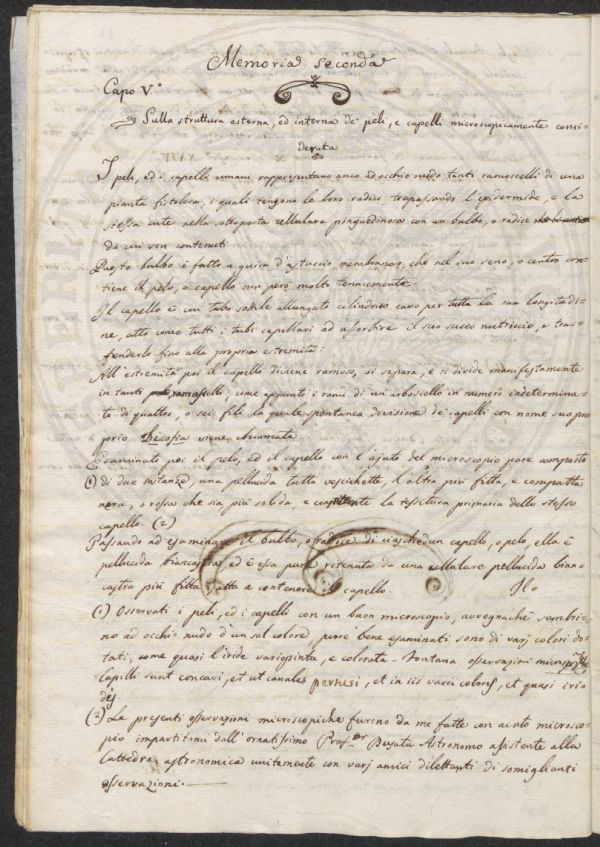 Memoria seconda
Capo V.°
Sulla struttura esterna, ed interna de' peli, e capelli microscopicamente consi=
derata
I peli, ed i capelli umani rappresentano anco ad occhio nudo tanti ramoscelli di una
pianta fistolosa, i quali tengono le loro radici, trapassando l'epidermide, e la
stessa cute nella sottoposta cellulare pinguedinosa con un bulbo, o radice
da cui son contenuti
Questo bulbo è fatto a guisa d'astuccio membranoso, che nel suo seno, o centro con=
tiene il pelo, o capello non però molto tenacemente.
Il capello è un tubo sottile allungato cilindrico cavo per tutta la sua longitudi=
ne, atto come tutti i tubi capillari ad assorbire il suo succo nutriccio, e tras=
fonderlo fino alla propria estremità.
All'estremità poi il capello diviene ramoso, si separa, e si divide manifestamente
in tanti ramoscelli, come appunto i rami di un arboscello in numero indetermina=
to di quattro, o sei fili la quale spontanea divisione de' capelli con nome suo pro
prio Dicosia viene chiamata
Esaminato poi il pelo, ed il capello con l'ajuto del microscopio pare composto
(1) di due sostanze, una pellucida tutta vescichette, l'altra più fitta, e compatta
nera, o rossa che sia più solida, e la tessitura primaria dello stesso
capello (2)
Passando ad esaminare il bulbo, o radice di ciaschedun capello, o pelo, ella è
pellucida biancastra, ed è essa pure ritenuta da una cellulare pellucida bian=
castra più fitta fatta a contenere il capello. Il=
(1) Osservati i peli, ed i capelli con un buon microscopio, avvegnachè sembri=
no ad occhio nudo d'un sol colore, purre bene esaminati sono di varj colori do=
tati, come quasi l'iride variopinta, e colorata - Fontana osservazioni
Capilli sunt concavi, et ut canales pertusi, et in iis varii colores, et quasi iri=
des
(2) Le presenti osservazioni microscopiche furono da me fatte con acuto microsco=
pio impartitomi dall'ornatissimo Prof.or Busata Astronomo assistente alla
Cattedra astronomica unitamente con varj amici dilettanti di somiglianti
osservazioni.